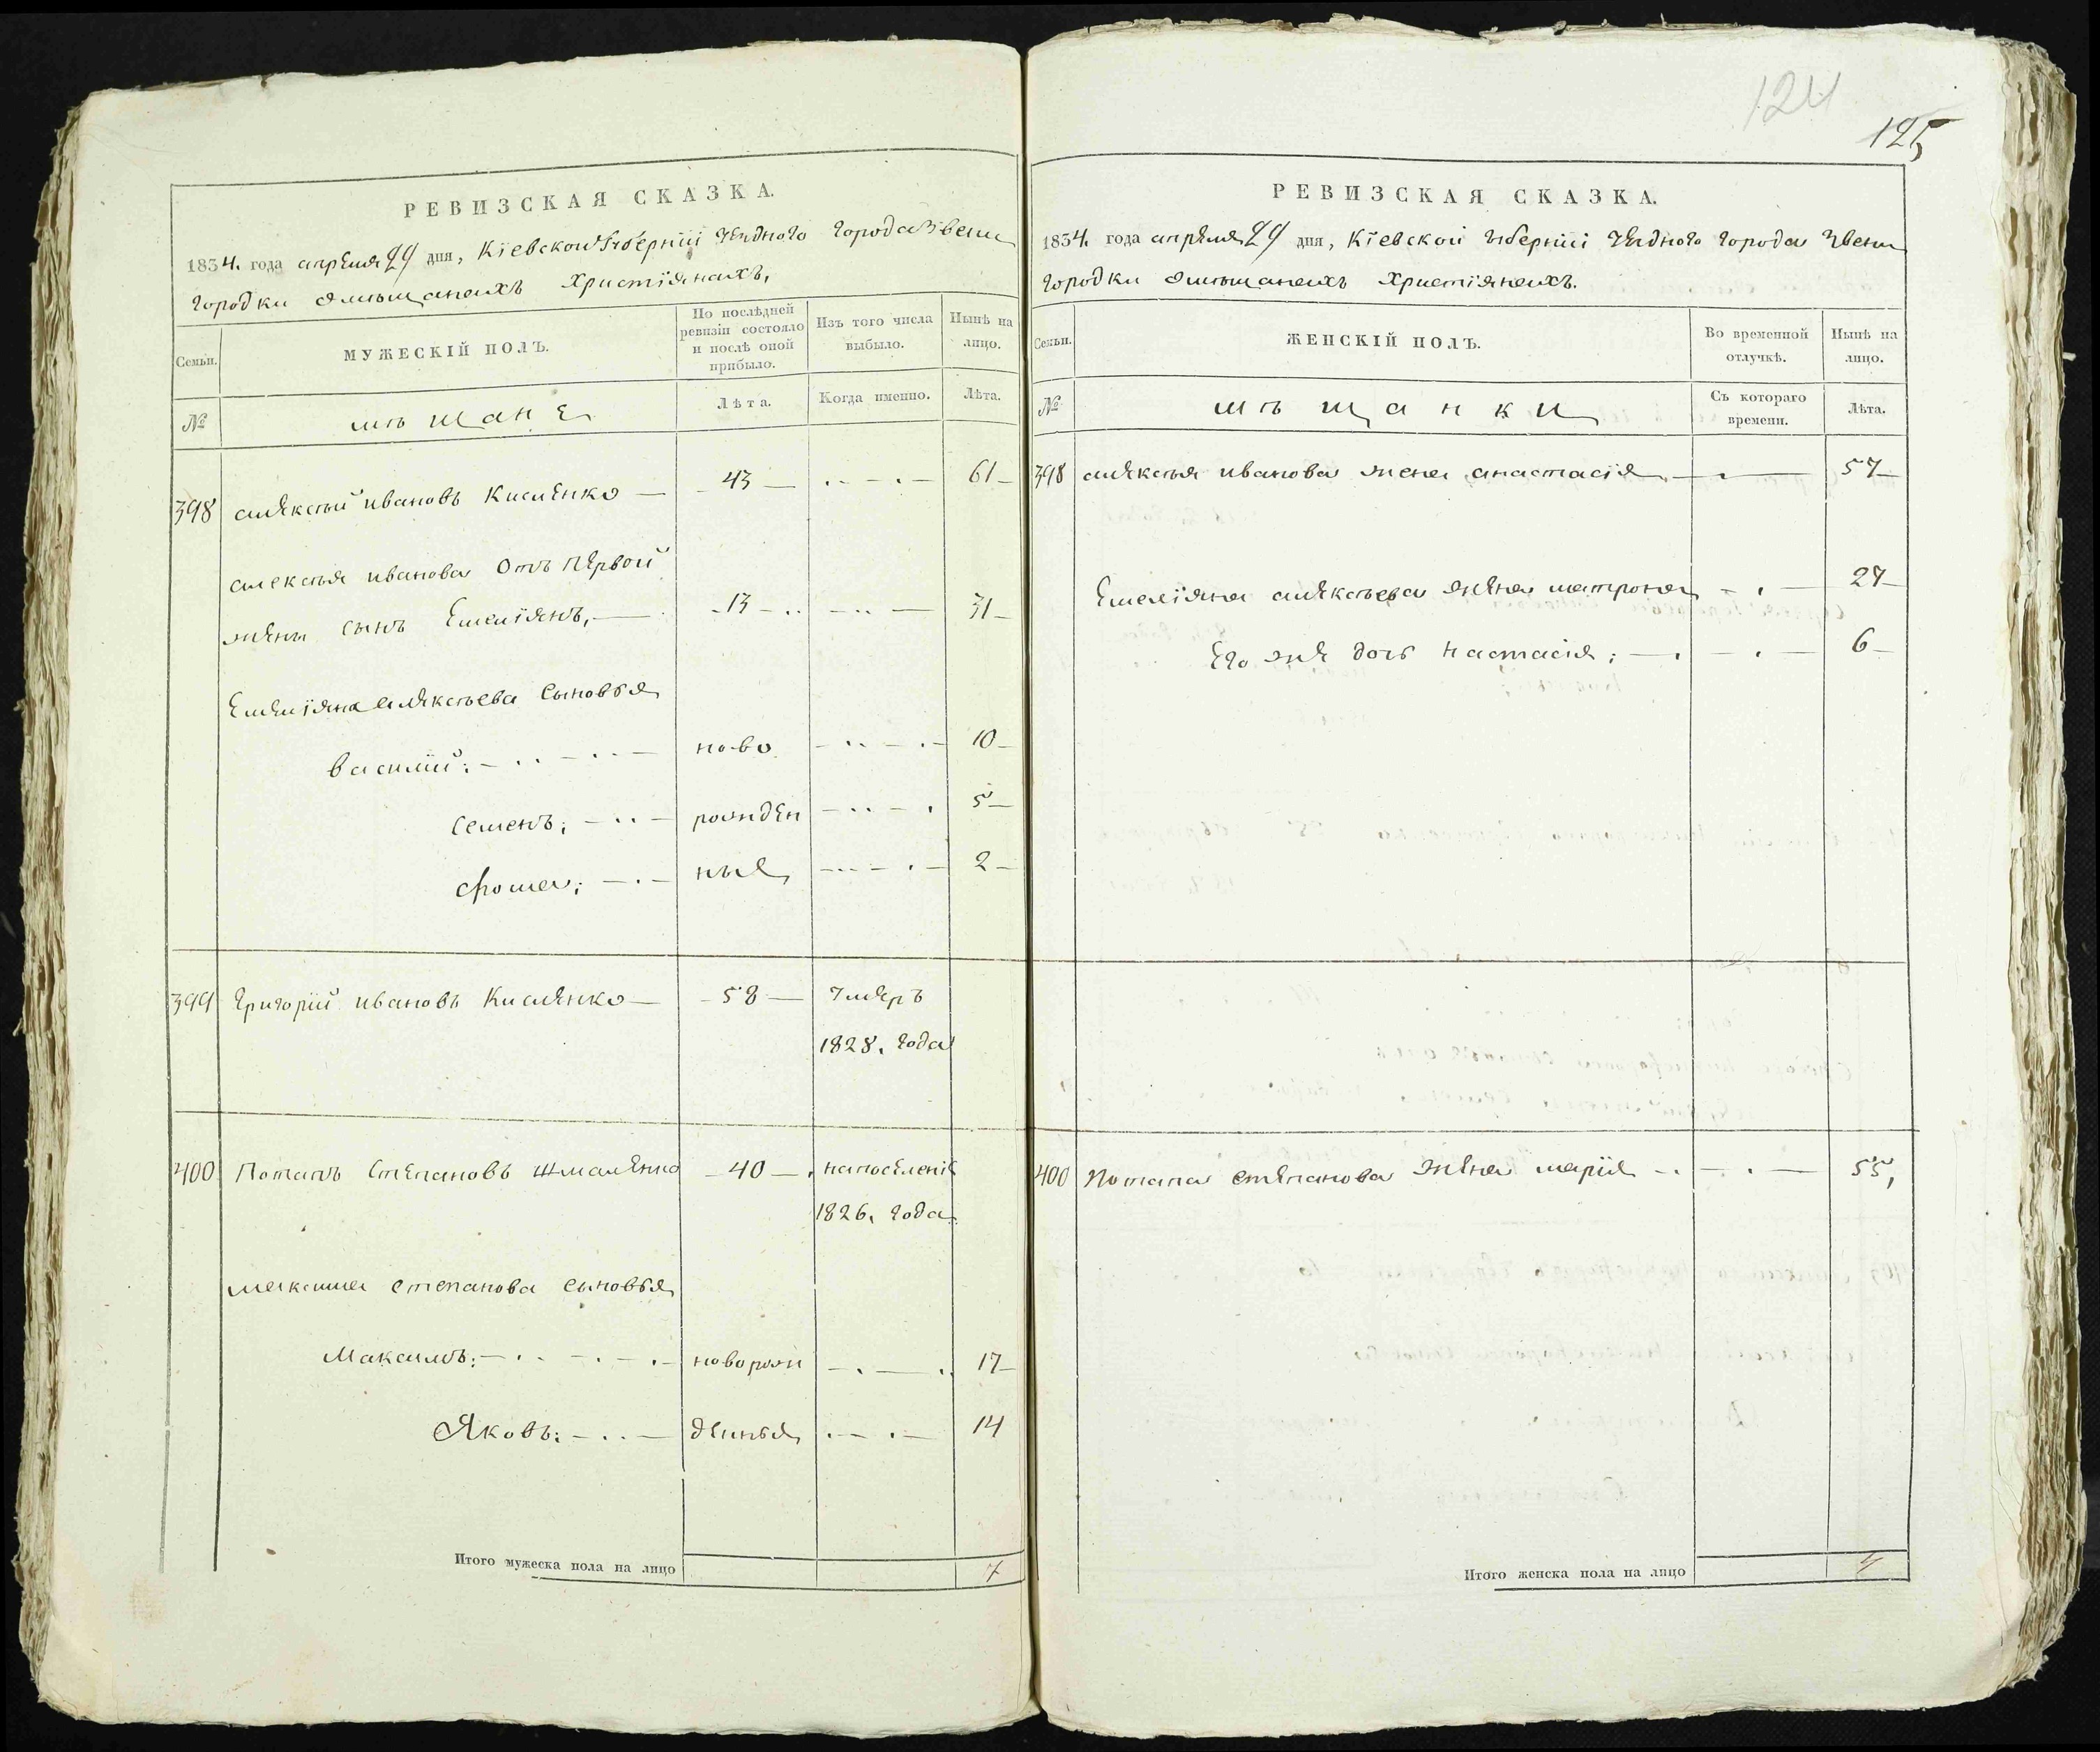 124
125
РЕВИЗСКАЯ СКАЗКА.
1834. года апреля 29 дня, Кіевской Губерніи уезднаго города Звени
городки о мѣщанахъ христіянахъ,
Семьи.
МУЖЕСКІЙ ПОЛЪ.
По послѣдней ревизіи состояло и послѣ оной прибыло.
Изъ того числа выбыло.
Нынѣ на лицо.
№
мѣщане
Лѣта.
Когда именно.
Лѣта.
398 алексѣй ивановъ Кисленко — 43 — 61
алексѣя иванова отъ первой
жены сынъ Емеліянъ, — 13 — 31
Емеліяна алексѣева сыновья
василій: — ново — 10
семенъ; — рожден — 5
фома; — ные — 2
399 Григорій ивановъ Кисленко — 58 — умеръ
1828. года
400 Потапъ Степановъ Шмаленко — 40 — на поселеніе
1826. года
максима степанова сыновья
Максимъ: — поворож — 17
Яковъ: — денныя — 14
Итого мужеска пола на лицо 7
РЕВИЗСКАЯ СКАЗКА.
1834. года апреля 29 дня, Кіевской губерніи уезднаго города Звени
городки о мѣщанахъ христіянахъ.
Семьи.
ЖЕНСКІЙ ПОЛЪ.
Во временной отлучкѣ.
Нынѣ на лицо.
№
мѣщанки
Съ котораго времени.
Лѣта.
398 алексѣя иванова жена анастасія — 57
Емеліяна алексѣева жена матрона — 27
Его же дочь настасія; — 6
400 Потапа степанова жена марія — 55,
Итого женска пола на лицо 4